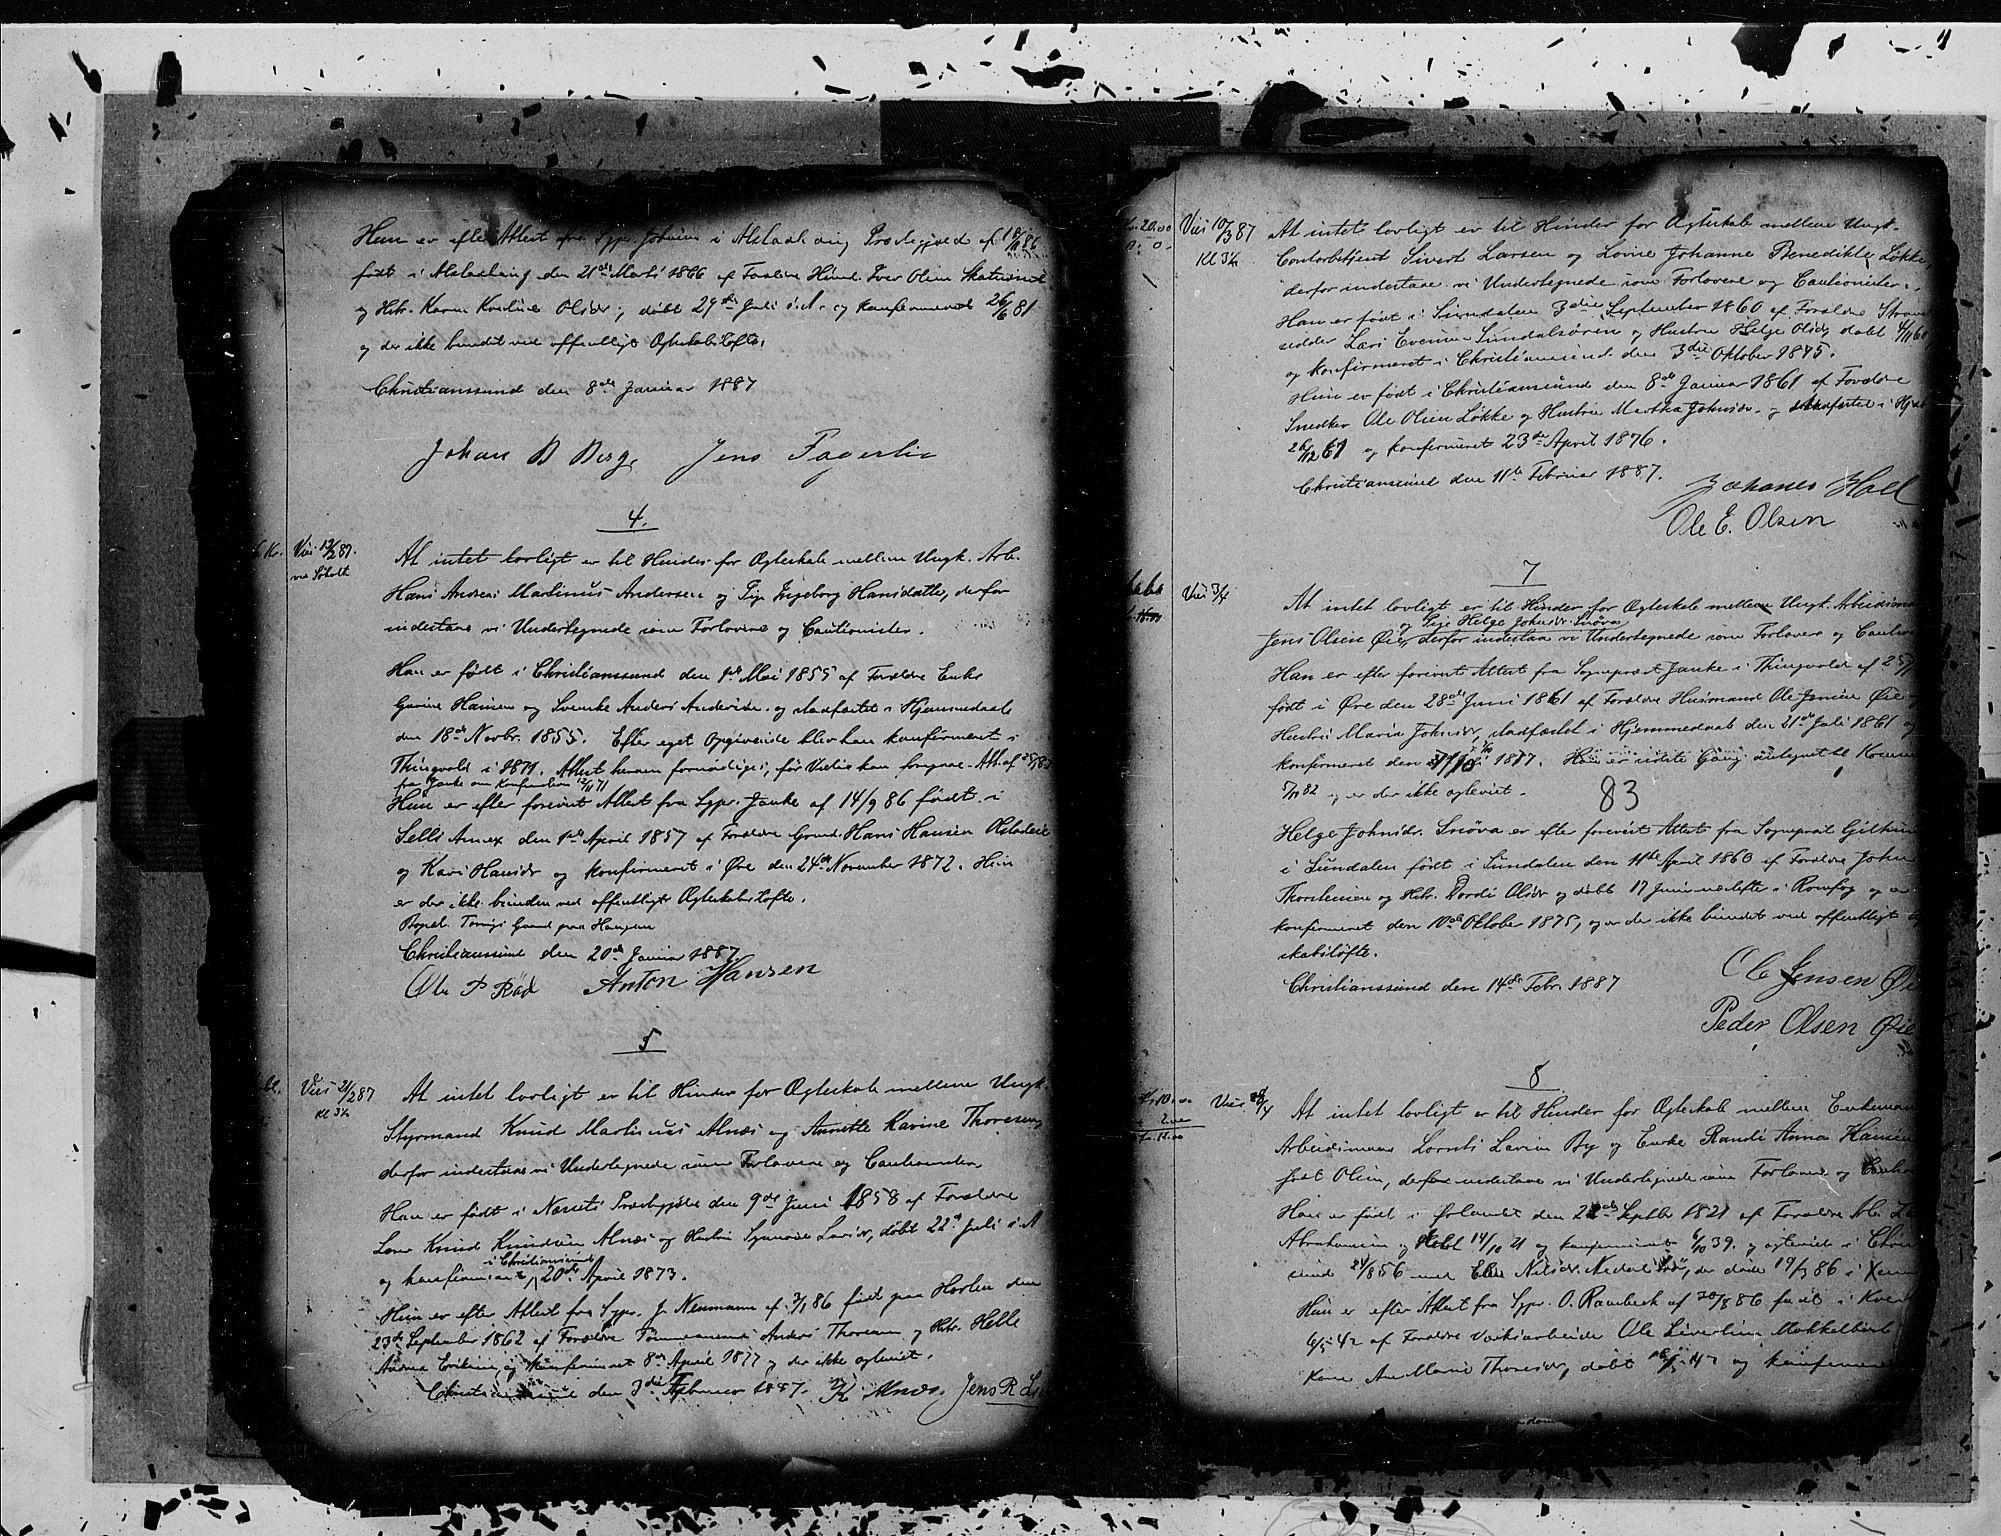 Hun er efter Attest fra Sgpr. Johnsen i Alstadhaug Præstegjæld af 18/11 86
født i Alstadhaug den 21de Marts 1866 af Forældre Huusd. Iver Olsen
og Hstr. Karen Olsdr, døbt 29de Juli s. A. og konfirmeret 26/6 81
og der ikke bundet ved offentligt Ægteskabsløfte.
Christianssund den 8de Januar 1887
Johan B Berg, Jens Fagerli
4.
Kr. Viet 12/2 87. At intet lovligt er til Hinder for Ægteskab mellem Ungk. Arb.
Hans Andreas Martinus Andersen og Pige Ingeborg Hansdatter, derfor
indestaae vi Undertegnede som Forlovere og Cautionister.
Han er født i Christianssund den 1ste Mai 1855 af Forældre Enke
Hansen og Svenske Anders Andersen og stadfæstet i Hjemmedaab
den 18de Novbr. 1855. Efter eget Opgivende blev han konfirmeret i
Thingvold i 1871. Attest herom fornødiges, før Vielse kan foregaae. Att. af
fra Janke om Konfirmation 12/11 71
Hun er efter forevist Attest fra Sgpr. Janke af 14/9 86 født i
Annex den 1ste April 1857 af Forældre Gmd. Hans Hansen
og Kari Hansdr og konfirmeret i Øre den 24de November 1872. Hun
er der ikke bunden ved offentligt Ægteskabsløfte.
Bopæl Gaard paa
Christianssund den 20de Januar 1887
Ole P Rød Anton Hansen
5
Viet 21/2 87 At intet lovligt er til Hinder for Ægteskab mellem Ungk.
Kl 3½
Styrmand Knud Martinus Alnæs og Annette Karine Thoresen,
derfor indestaae vi Undertegnede som Forlovere og Cautionister.
Han er født i Næssets Præstegjæld den 9de Juni 1858 af Forældre
Knud Knudsen Alnæs og Hustru Larsdr, døbt 22de Juli s. A
i Christianssund
og konfirmeret 20de April 1873.
Hun er efter Attest fra Sgpr. J. Neumann af 3/1 86 født paa Horten den
23de September 1862 af Forældre Tømmermand Anders Thoresen og Hstr. Helle
Andrea og konfirmeret 8de April 1877 og der ikke ægteviet.
Christianssund den 3die Februar 1887. K Alnæs. Jens R
Kr. 20.00 Viet 10/3 87 At intet lovligt er til Hinder for Ægteskab mellem Ungk.
Kl 3½ Contorbetjent Sivert Larsen og Lovise Johanne Benedikte Løkke,
derfor indestaae vi Undertegnede som Forlovere og Cautionister.
Han er født i Sundalen 3die September 1860 af Forældre Strand-
sidder Lars Evensen Sundalsøren og Hustru Helge Olsdr, døbt 4/11 60
og konfirmeret i Christianssund den 3die Oktober 1875.
Hun er født i Christianssund den 8de Januar 1861 af Forældre
Snedker Ole Olsen Løkke og Hustru Martha Johnsdr. og stadfæstet i
26/12 61 og konfirmeret 23de April 1876.
Christianssund den 11te Februar 1887.
Johanes Holl
Ole E. Olsen
7
Viet 3/4 At intet lovligt er til Hinder for Ægteskab mellem Ungk. Arbeidsmand
og Pige Helge Johnsdr. Snøva
Jens Olsen Øie, derfor indestaa vi Undertegnede som Forlovere og
Han er efter forevist Attest fra Sogneprest Janke i Thingvold af
født i Øre den 28de Juni 1861 af Forældre Husmand Ole Jensen Øie og
Hustru Marie Johnsdr, stadfæstet i Hjemmedaab den 21de Juli 1861 og
konfirmeret den 7/10 1877. Han er sidste Gang antegnet til
5/11 82 og er der ikke ægteviet.
83
Helge Johnsdr. Snøva er efter forevist Attest fra Sogneprest
i Sundalen født i Sundalen den 11te April 1860 af Forældre John
Thorstensen og Hstr. Dordi Olsdr og døbt 17 Juni næstefter i Romfog og er
konfirmeret den 10de Oktober 1875, og er der ikke bundet ved offentligt
skabsløfte.
Christianssund den 14de Febr. 1887
Ol Jensen Øie
Peder Olsen Øie
8
Kr. 10.00 Viet 28/4 At intet lovligt er til Hinder for Ægteskab mellem Enkemand
2.00
12.00
Arbeidsmand Lorents Larsen By og Enke Randi Anna Hansen
født Olsen, derfor indestaae vi Undertegnede som Forlovere og
Han er født i Ørlandet den 22de Septbr 1821 af Forældre Arb.
Abrahamsen og 14/10 21 og konfirmeret 6/10 39. og ægteviet i
sund 24/8 56 med Nilsdr. der døde 19/3 86 i
Hun er efter Attest fra Sgpr. O. Rambech af 30/8 86 født i
6/5 42 af Forældre Værksarbeider Ole
Kone Ane Marie Thoresdr, døbt 16/5 42 og konfirmeret